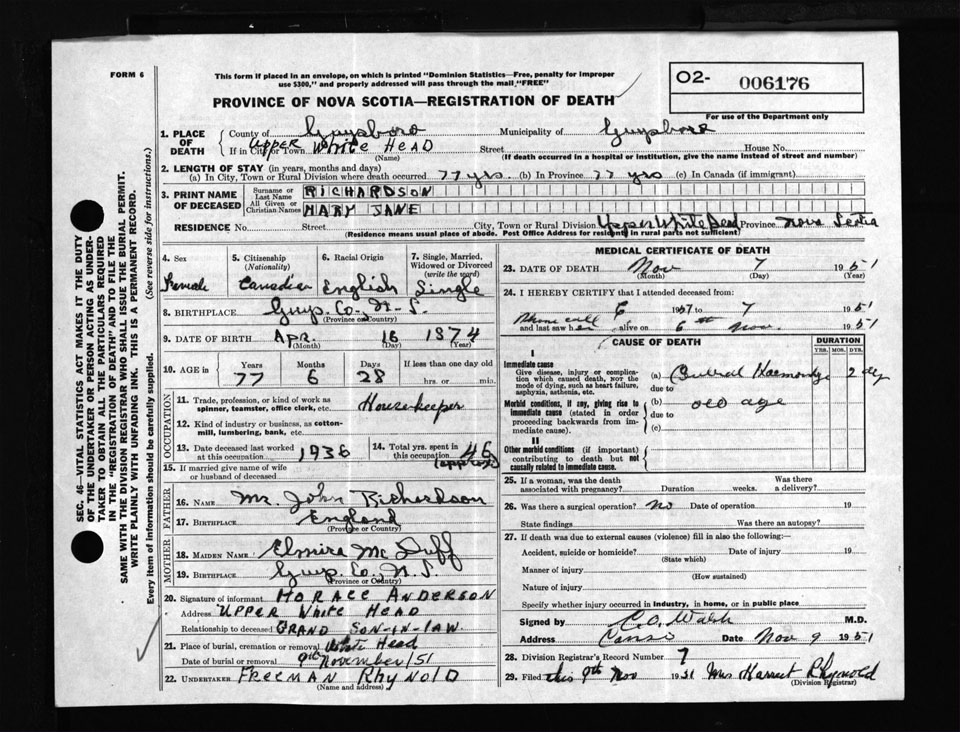 FORM 6
This form if placed in an envelope, on which is printed "Dominion Statistics—Free, penalty for improper
use $300," and properly addressed will pass through the mail "FREE"
O2- 006176
For use of the Department only
PROVINCE OF NOVA SCOTIA—REGISTRATION OF DEATH
1. PLACE OF DEATH
County of Guysboro Municipality of Guysboro
If in City or Town Upper White Head Street House No.
(Name) (If death occurred in a hospital or institution, give the name instead of street and number)
2. LENGTH OF STAY (in years, months and days)
(a) In City, Town or Rural Division where death occurred 77 yrs. (b) In Province 77 yrs (c) In Canada (if immigrant)
3. PRINT NAME OF DECEASED
Surname or Last Name RICHARDSON
All Given or Christian Names MARY JANE
RESIDENCE No. Street City, Town or Rural Division Upper White Head Province Nova Scotia
(Residence means usual place of abode. Post Office Address for residents in rural parts not sufficient)
4. Sex Female
5. Citizenship (Nationality) Canadian
6. Racial Origin English
7. Single, Married, Widowed or Divorced (write the word) Single
8. BIRTHPLACE Guys. Co., N.S.
(Province or Country)
9. DATE OF BIRTH Apr. 16 1874
(Month) (Day) (Year)
10. AGE in Years Months Days If less than one day old
77 6 28 hrs. or min.
OCCUPATION
11. Trade, profession, or kind of work as spinner, teamster, office clerk, etc. Housekeeper
12. Kind of industry or business, as cotton-mill, lumbering, bank, etc.
13. Date deceased last worked at this occupation 1936
14. Total yrs. spent in this occupation 46 (approx)
15. If married give name of wife or husband of deceased
FATHER
16. NAME Mr. John Richardson
17. BIRTHPLACE England
(Province or Country)
MOTHER
18. MAIDEN NAME Elmira Mc Duff
19. BIRTHPLACE Guys. Co. N.S.
(Province or Country)
20. Signature of informant HORACE ANDERSON
Address UPPER WHITE HEAD
Relationship to deceased GRAND SON-IN-LAW
21. Place of burial, cremation or removal White Head
Date of burial or removal 9th November/51
22. UNDERTAKER FREEMAN RHYNOLD
(Name and address)
MEDICAL CERTIFICATE OF DEATH
23. DATE OF DEATH Nov 7 1951
(Month) (Day) (Year)
24. I HEREBY CERTIFY that I attended deceased from:
6 1951 to 7 1951
Phone call
and last saw her alive on 6th Nov. 1951
CAUSE OF DEATH
DURATION
YRS. MOS. DYS.
I
Immediate cause
Give disease, injury or complication which caused death, NOT the mode of dying, such as heart failure, asphyxia, asthenia, etc.
(a) Cerebral Haemorrhage 2 dy
due to
Morbid conditions, if any, giving rise to immediate cause (stated in order proceeding backwards from immediate cause).
(b) old age
due to
(c)
II
Other morbid conditions (if important) contributing to death but not causally related to immediate cause.
25. If a woman, was the death associated with pregnancy? Duration weeks. Was there a delivery?
26. Was there a surgical operation? No Date of operation 19
State findings Was there an autopsy?
27. If death was due to external causes (violence) fill in also the following:
Accident, suicide or homicide? Date of injury 19
(State which)
Manner of injury
(How sustained)
Nature of injury
Specify whether injury occurred in industry, in home, or in public place
Signed by C.O. Walsh M.D.
Address Canso Date Nov 9 1951
28. Division Registrar's Record Number 7
29. Filed this 9th Nov 1951 Mrs Harriet Rhynold
(Division Registrar)
SEC. 46—VITAL STATISTICS ACT MAKES IT THE DUTY
OF THE UNDERTAKER OR PERSON ACTING AS UNDER-
TAKER TO OBTAIN ALL THE PARTICULARS REQUIRED
IN THE "REGISTRATION OF DEATH" AND TO FILE THE
SAME WITH THE DIVISION REGISTRAR WHO SHALL ISSUE THE BURIAL PERMIT.
WRITE PLAINLY WITH UNFADING INK. THIS IS A PERMANENT RECORD.
Every item of information should be carefully supplied. (See reverse side for instructions.)